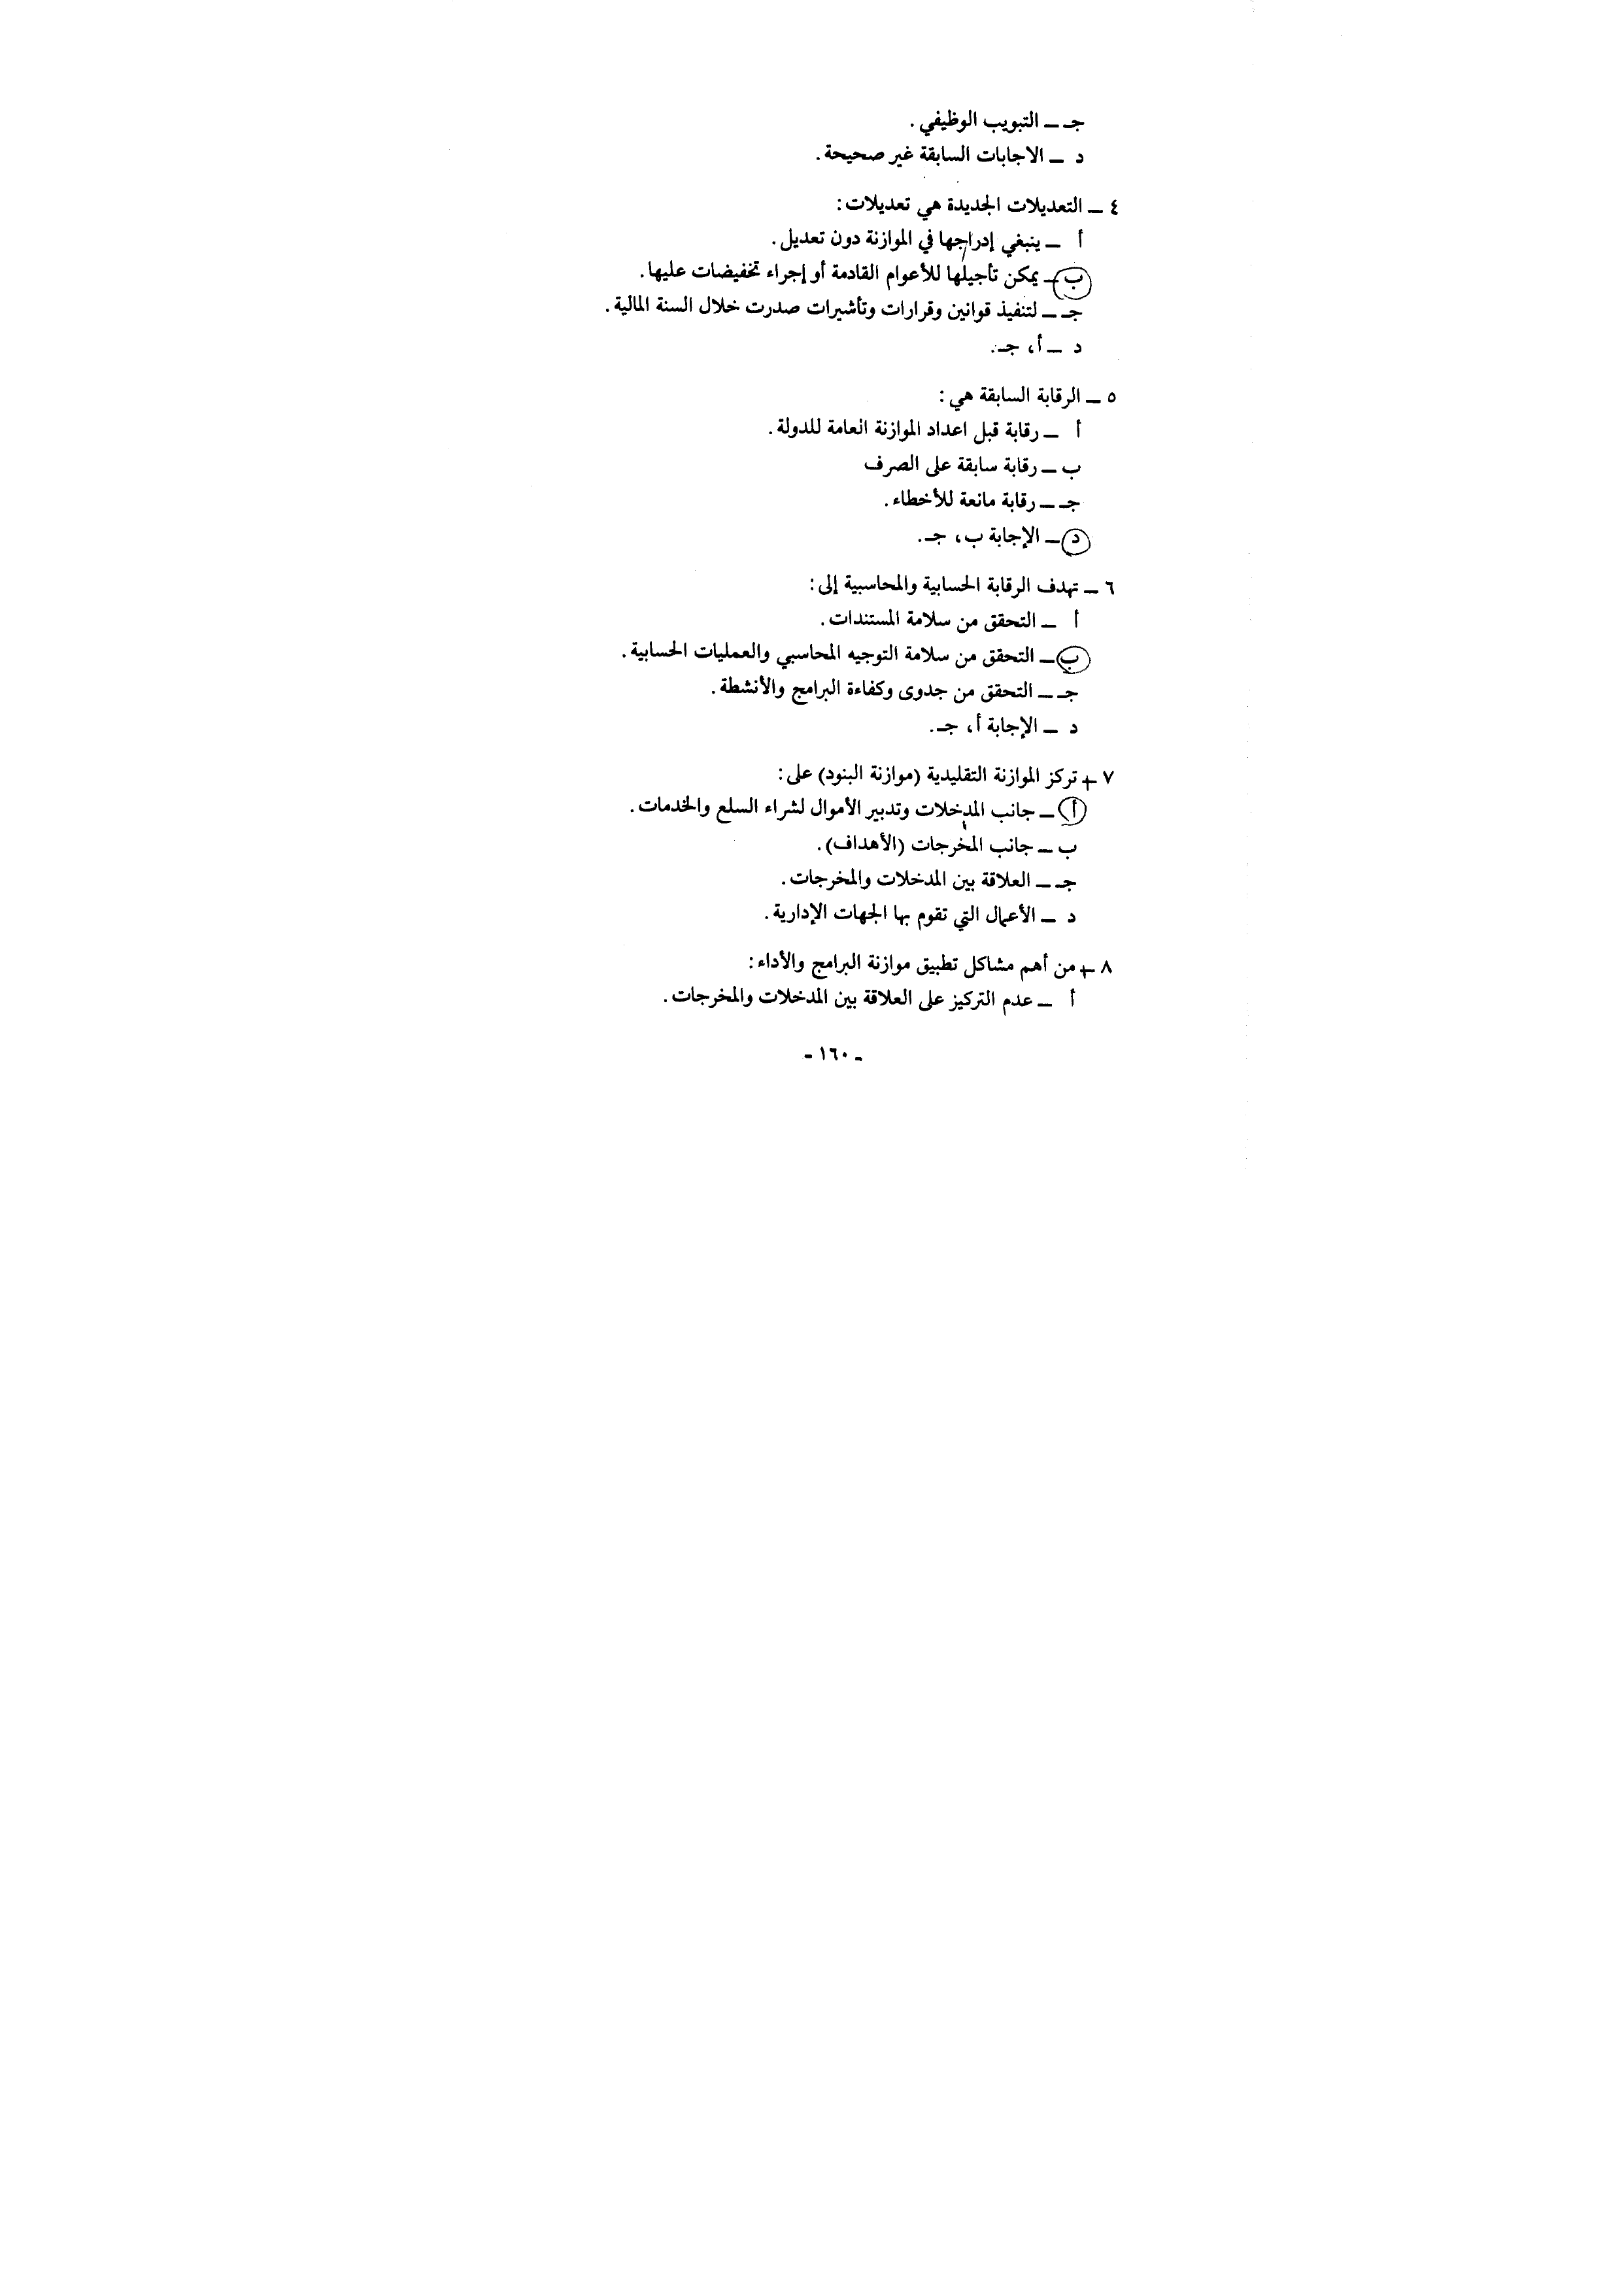 جـ ـ التبويب الوظيفي.
د ـ الاجابات السابقة غير صحيحة.
٤ ـ التعديلات الجديدة هي تعديلات:
أ ـ ينبغي إدراجها في الموازنة دون تعديل.
ب ـ يمكن تأجيلها للأعوام القادمة أو إجراء تخفيضات عليها.
جـ ـ لتنفيذ قوانين وقرارات وتأشيرات صدرت خلال السنة المالية.
د ـ أ، جـ.
٥ ـ الرقابة السابقة هي:
أ ـ رقابة قبل اعداد الموازنة العامة للدولة.
ب ـ رقابة سابقة على الصرف
جـ ـ رقابة مانعة للأخطاء.
د ـ الإجابة ب، جـ.
٦ ـ تهدف الرقابة الحسابية والمحاسبية إلى:
أ ـ التحقق من سلامة المستندات.
ب ـ التحقق من سلامة التوجيه المحاسبي والعمليات الحسابية.
جـ ـ التحقق من جدوى وكفاءة البرامج والأنشطة.
د ـ الإجابة أ، جـ.
٧ + تركز الموازنة التقليدية (موازنة البنود) على:
أ ـ جانب المدخلات وتدبير الأموال لشراء السلع والخدمات.
ب ـ جانب المخرجات (الأهداف).
جـ ـ العلاقة بين المدخلات والمخرجات.
د ـ الأعمال التي تقوم بها الجهات الإدارية.
٨ + من أهم مشاكل تطبيق موازنة البرامج والأداء:
أ ـ عدم التركيز على العلاقة بين المدخلات والمخرجات.
ـ ١٦٠ ـ